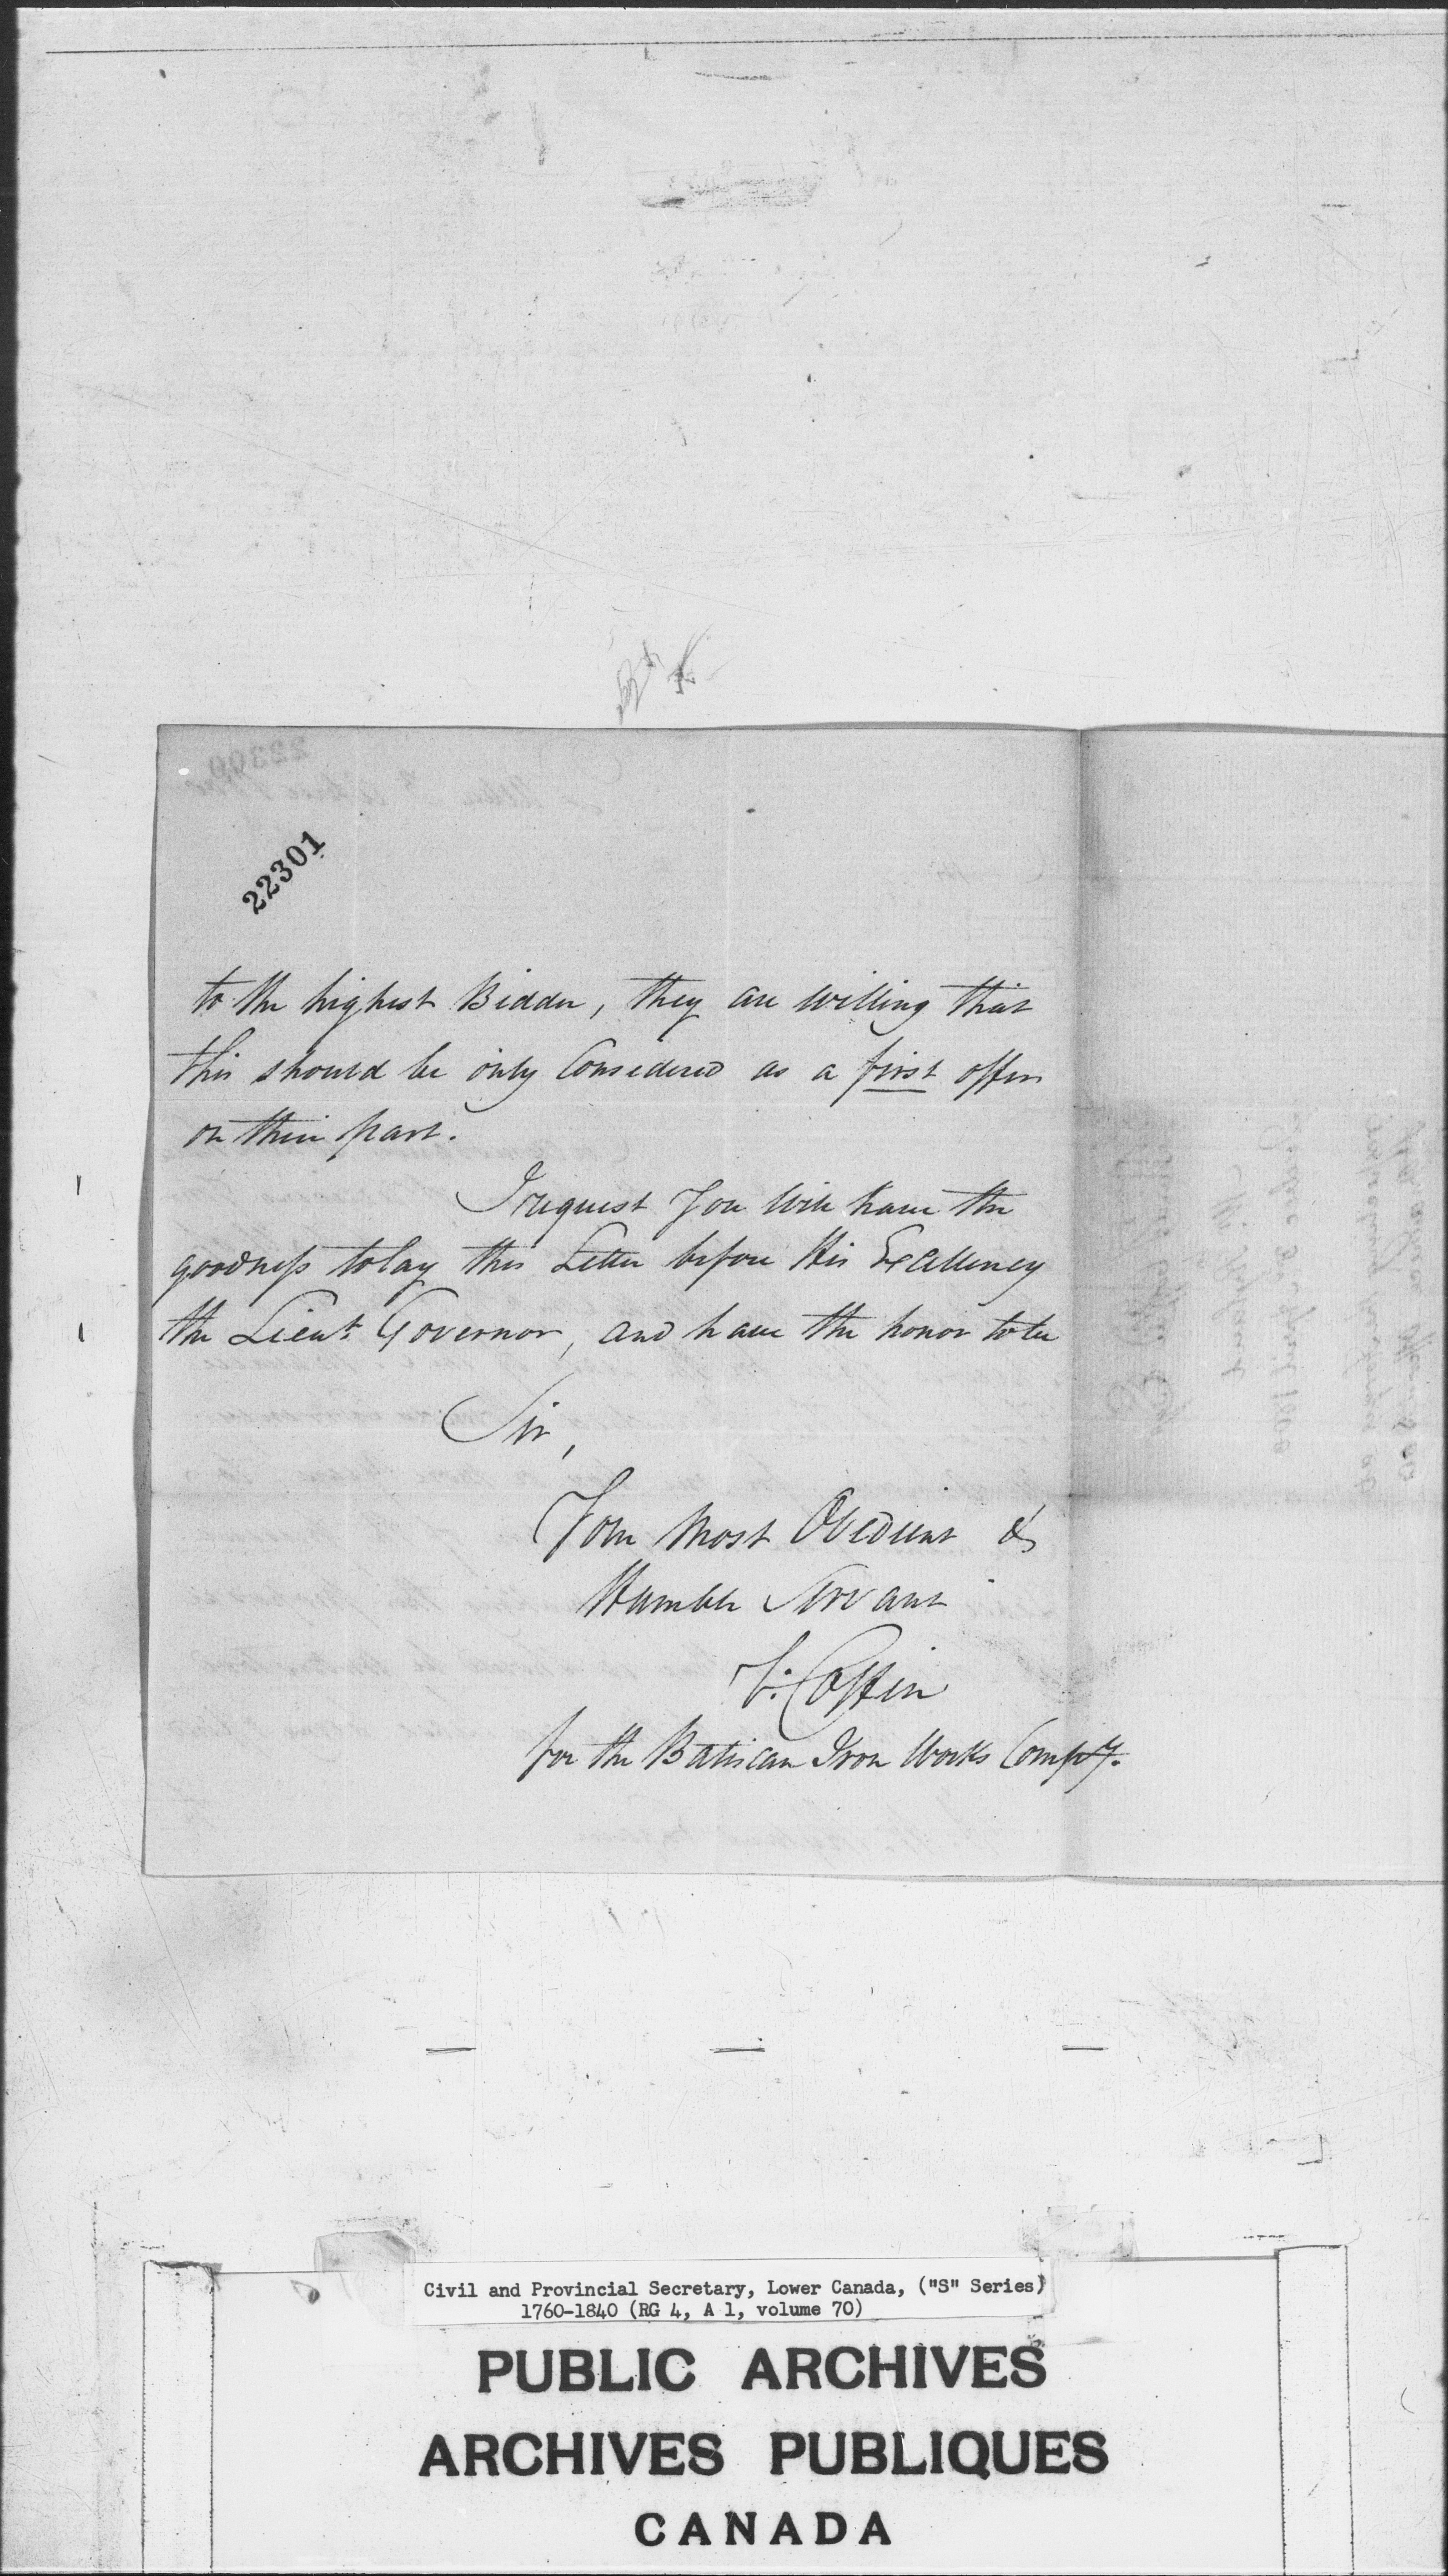 22301
to the highest Bidder, they are willing that
this should be only Considered as a first offer
on their part.
I request You will have the
goodness to lay this Letter before His Excellency
the Lieut. Governor, and have the honor to be
Sir,
Your Most Obedient &
Humble Servant
T. Coffin
for the Batiscan Iron Works Compy.
Civil and Provincial Secretary, Lower Canada, ("S" Series)
1760-1840 (RG 4, A 1, volume 70)
PUBLIC ARCHIVES
ARCHIVES PUBLIQUES
CANADA